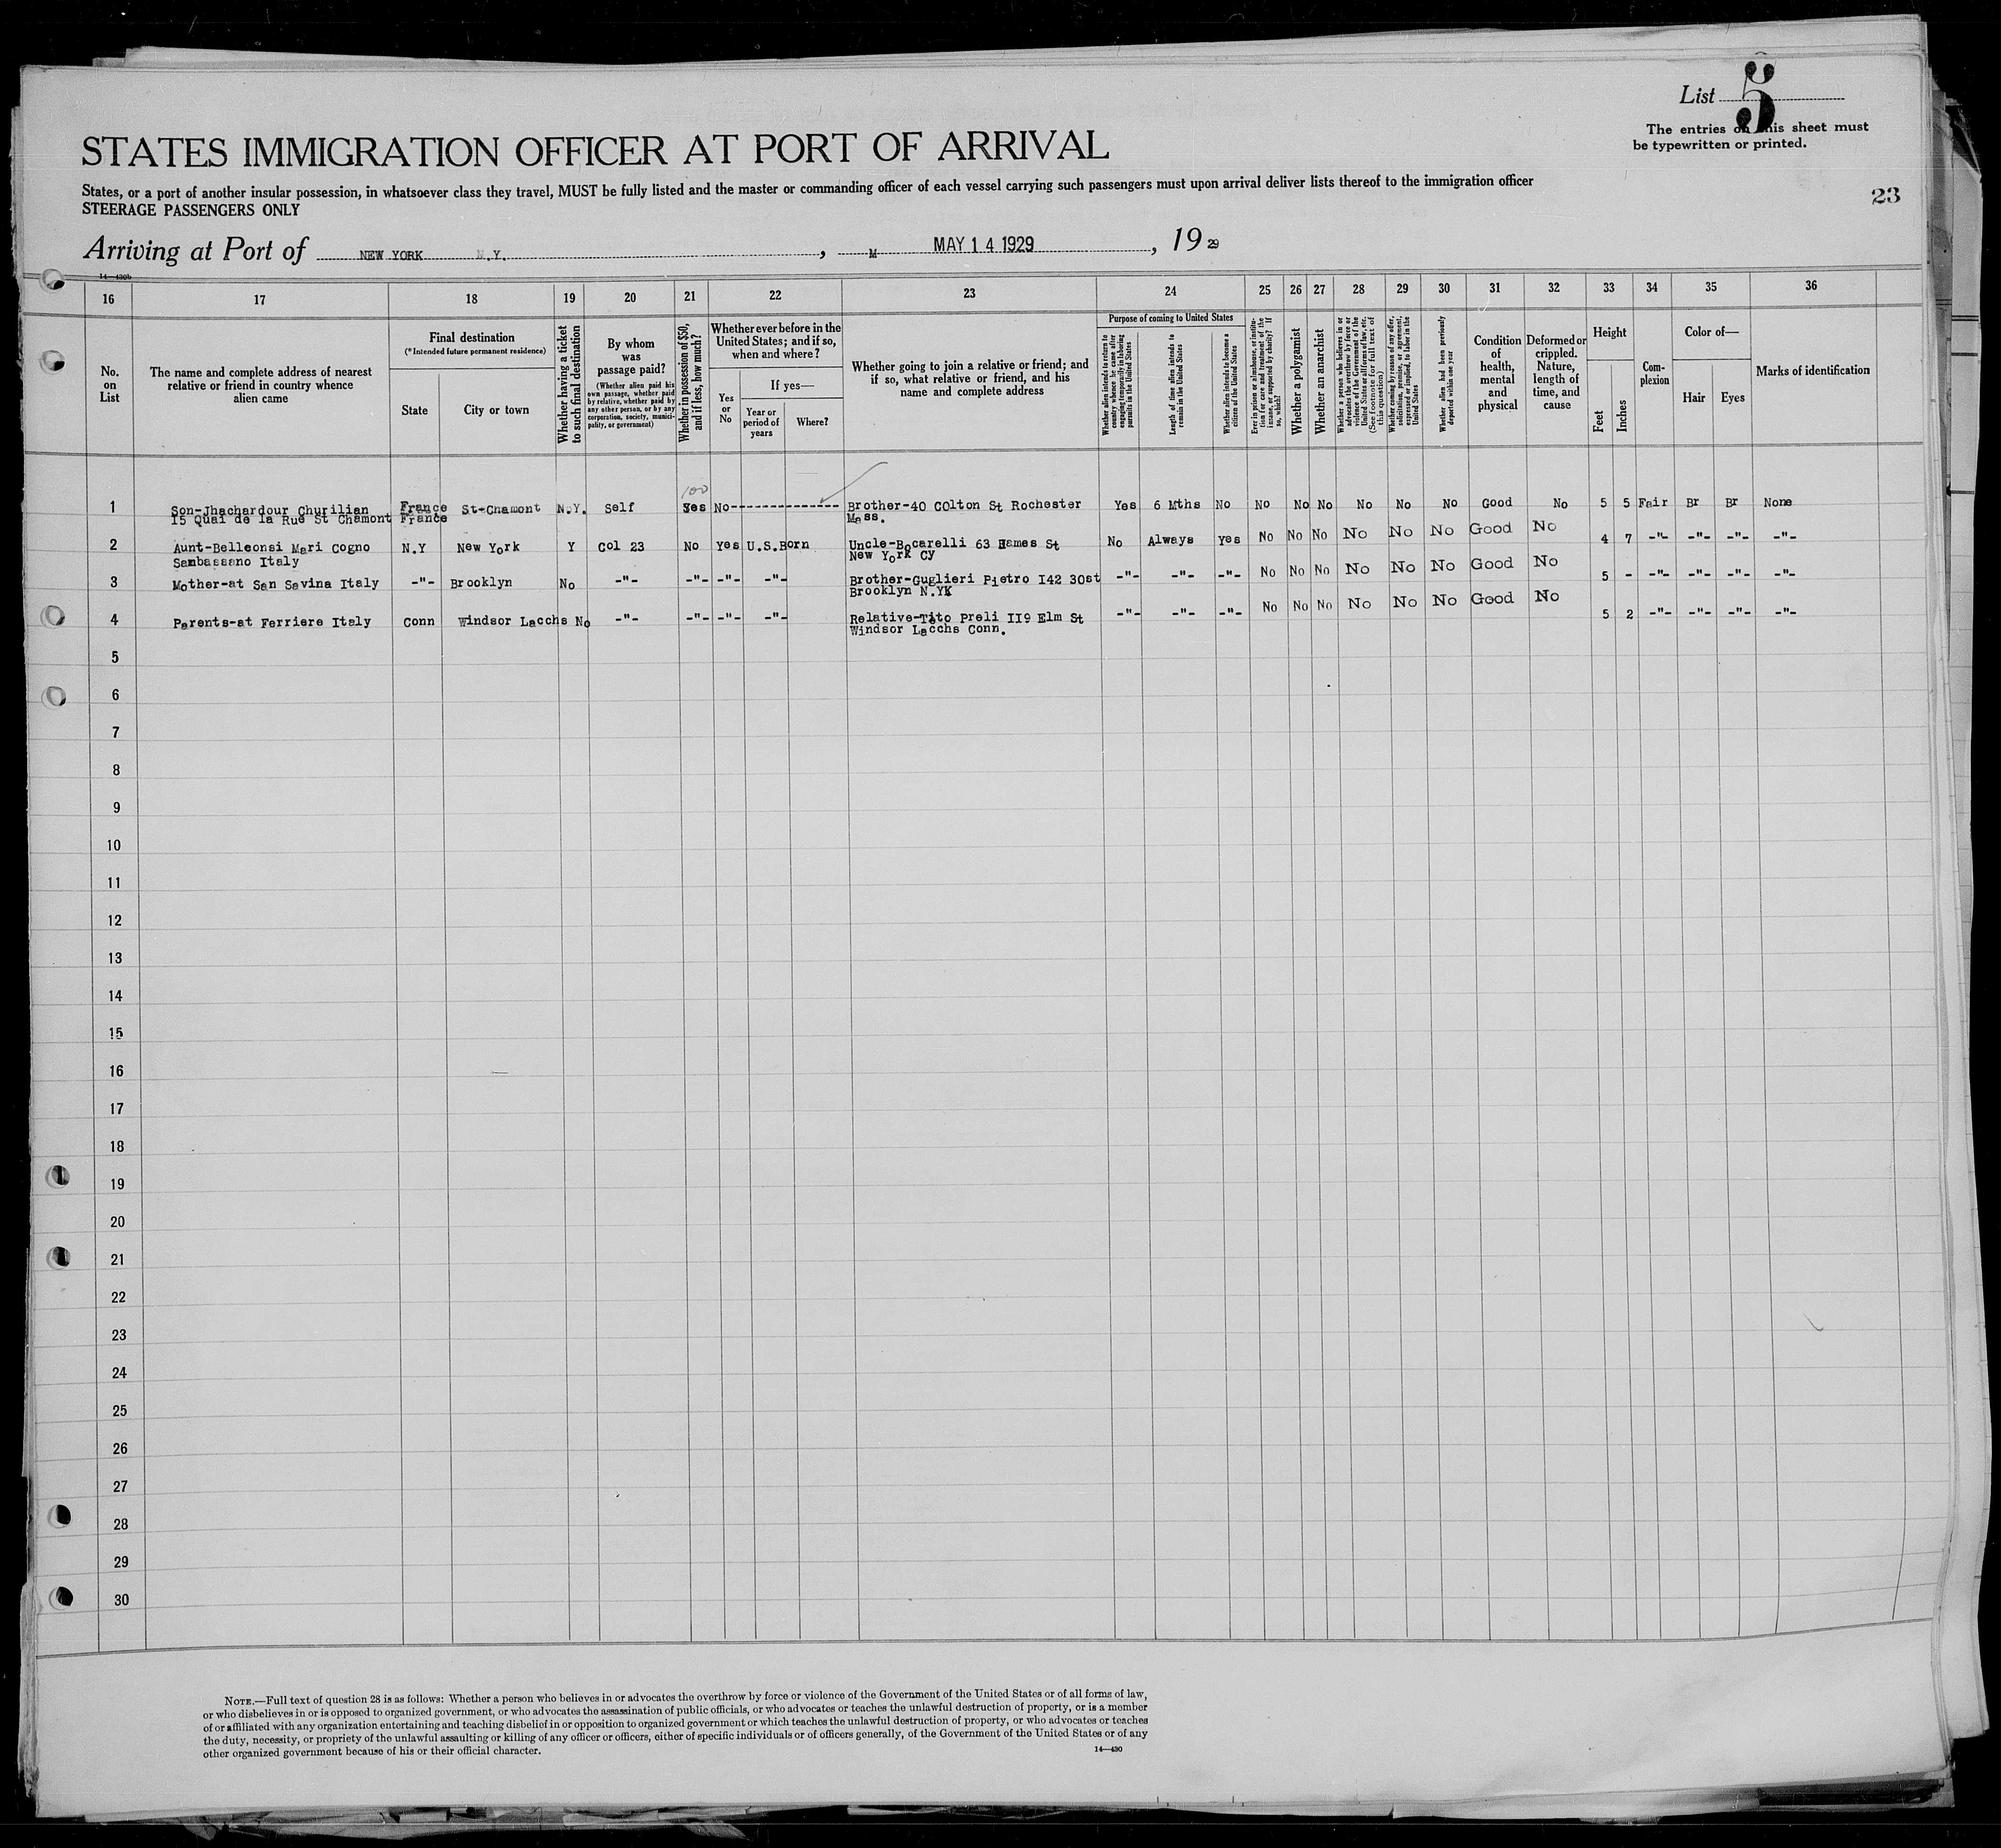 List 5
The entries on this sheet must
be typewritten or printed.
STATES IMMIGRATION OFFICER AT PORT OF ARRIVAL
States, or a port of another insular possession, in whatsoever class they travel, MUST be fully listed and the master or commanding officer of each vessel carrying such passengers must upon arrival deliver lists thereof to the immigration officer
STEERAGE PASSENGERS ONLY
23
Arriving at Port of NEW YORK N.Y. , M MAY 14 1929 , 19 29
14—430b
16 17 18 19 20 21 22 23 24 25 26 27 28 29 30 31 32 33 34 35 36
No. on List
The name and complete address of nearest relative or friend in country whence alien came
Final destination
(*Intended future permanent residence)
State
City or town
Whether having a ticket to such final destination
By whom was passage paid?
(Whether alien paid his own passage, whether paid by relative, whether paid by any other person, or by any corporation, society, municipality, or government)
Whether in possession of $50, and if less, how much?
Whether ever before in the United States; and if so, when and where?
Yes or No
If yes—
Year or period of years
Where?
Whether going to join a relative or friend; and if so, what relative or friend, and his name and complete address
Purpose of coming to United States
Whether alien intends to return to country whence he came after engaging temporarily in laboring pursuits in the United States
Length of time alien intends to remain in the United States
Whether alien intends to become a citizen of the United States
Ever in prison or almshouse, or institution for care and treatment of the insane, or supported by charity? If so, which?
Whether a polygamist
Whether an anarchist
Whether a person who believes in or advocates the overthrow by force or violence of the Government of the United States or all forms of law, etc. (See footnote for full text of this question)
Whether coming by reason of any offer, solicitation, promise, or agreement, expressed or implied, to labor in the United States
Whether alien had been previously deported within one year
Condition of health, mental and physical
Deformed or crippled. Nature, length of time, and cause
Height
Feet
Inches
Complexion
Color of—
Hair
Eyes
Marks of identification
100
1 Son-Jhachardour Churilian France St-Chamont N.Y. Self Yes No Brother-40 Colton St Rochester Yes 6 Mths No No No No No No No Good No 5 5 Fair Br Br None
15 Quai de la Rue St Chamont France Mass.
2 Aunt-Belleonsi Mari Cogno N.Y New York Y Col 23 No Yes U.S.Born Uncle-Bocarelli 63 Hames St No Always Yes No No No No No No Good No 4 7 -"- -"- -"- -"-
Sambassano Italy New York Cy
3 Mother-at San Savina Italy -"- Brooklyn No -"- -"- -"- -"- Brother-Guglieri Pietro I42 30st -"- -"- -"- No No No No No No Good No 5 - -"- -"- -"- -"-
Brooklyn N.YK
4 Parents-at Ferriere Italy Conn Windsor Lacchs No -"- -"- -"- -"- Relative-Tito Preli II9 Elm St -"- -"- -"- No No No No No No Good No 5 2 -"- -"- -"- -"-
Windsor Lacchs Conn.
5
6
7
8
9
10
11
12
13
14
15
16
17
18
19
20
21
22
23
24
25
26
27
28
29
30
NOTE.—Full text of question 28 is as follows: Whether a person who believes in or advocates the overthrow by force or violence of the Government of the United States or of all forms of law,
or who disbelieves in or is opposed to organized government, or who advocates the assassination of public officials, or who advocates or teaches the unlawful destruction of property, or is a member
of or affiliated with any organization entertaining and teaching disbelief in or opposition to organized government or which teaches the unlawful destruction of property, or who advocates or teaches
the duty, necessity, or propriety of the unlawful assaulting or killing of any officer or officers, either of specific individuals or of officers generally, of the Government of the United States or of any
other organized government because of his or their official character.
14—430